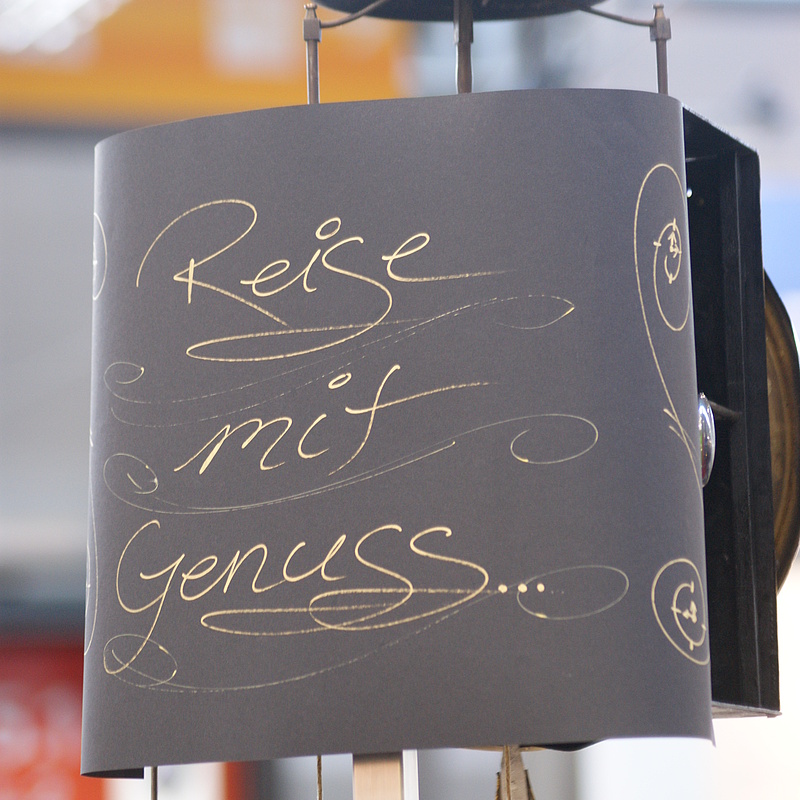 Reise
mit
Genuss...